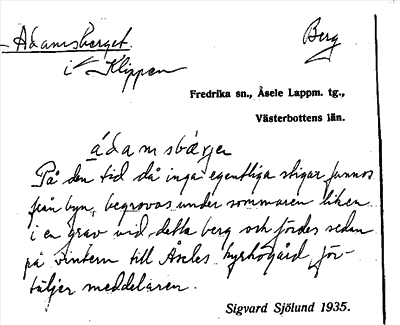 Adamsberget.
i Klippen
Berg
Fredrika sn., Åsele Lappm. tg.,
Västerbottens län.
ádamsbærjer
På den tid då inga egentliga stigar funnos
från byn, begrovos under sommaren liken
i en grav vid detta berg och fördes sedan
på vintern till Åseles kyrkogård, för-
täljer meddelaren.
Sigvard Sjölund 1935.